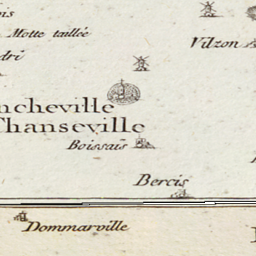 is
Motte taillée
dri
Vilzon
ncheville
Chanseville
Boissais
Bercis
Dommarville